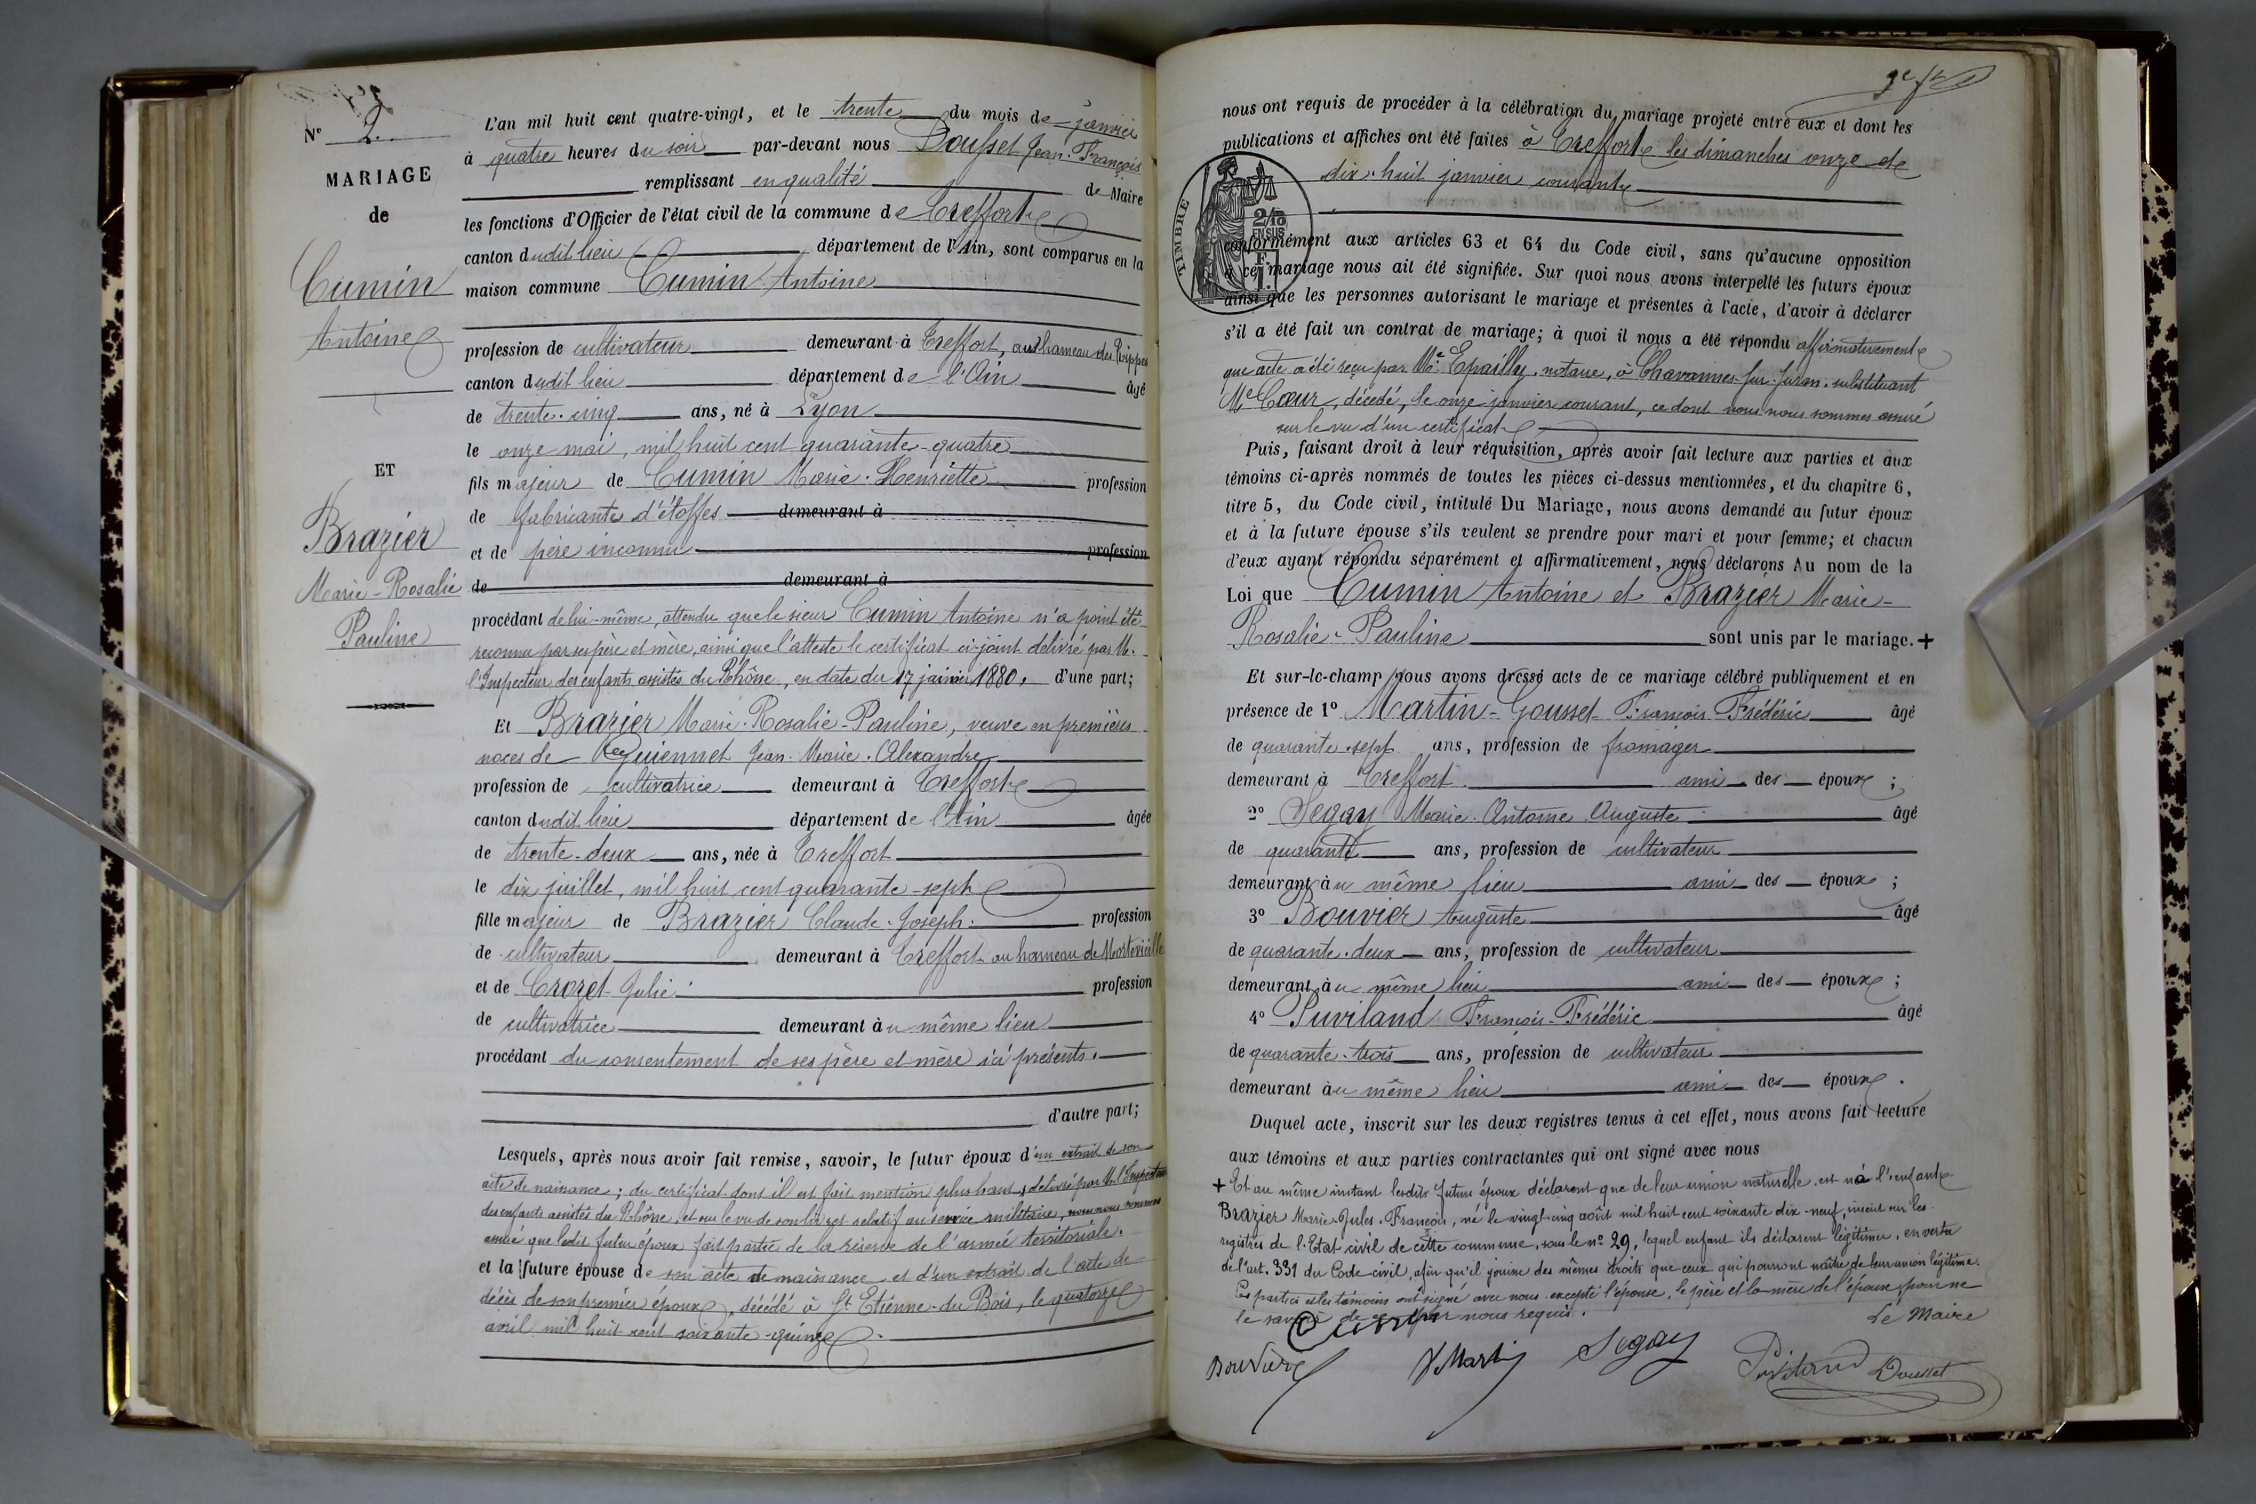 N° 2.
MARIAGE
de
Cumin
Antoine
ET
Brazier
Marie-Rosalie
Pauline
L'an mil huit cent quatre-vingt, et le trente du mois de janvier
à quatre heures du soir par-devant nous Dousset Jean-François
remplissant en qualité de Maire
les fonctions d'Officier de l'état civil de la commune de Treffort
canton dudit lieu département de l'Ain, sont comparus en la
maison commune Cumin Antoine
profession de cultivateur demeurant à Treffort, au hameau des Rippes
canton dudit lieu département de l'Ain âgé
de trente-cinq ans, né à Lyon
le onze mai, mil huit cent quarante-quatre
fils majeur de Cumin Marie-Henriette profession
de fabricante d'étoffes demeurant à
et de père inconnu profession
de demeurant à
procédant de lui-même, attendu que le sieur Cumin Antoine n'a point été
reconnu par ses père et mère, ainsi que l'atteste le certificat ci-joint délivré par M.
l'Inspecteur des enfants assistés du Rhône, en date du 17 janvier 1880. d'une part;
Et Brazier Marie-Rosalie-Pauline, veuve en premières
noces de Guiennet Jean-Marie-Alexandre
profession de cultivatrice demeurant à Treffort
canton dudit lieu département de l'Ain âgée
de trente-deux ans, née à Treffort
le dix juillet, mil huit cent quarante-sept
fille majeur de Brazier Claude-Joseph profession
de cultivateur demeurant à Treffort au hameau de Montevieille
et de Crozet Julie profession
de cultivatrice demeurant au même lieu
procédant du consentement de ses père et mère ici présents.
d'autre part;
Lesquels, après nous avoir fait remise, savoir, le futur époux d'un extrait de son
acte de naissance; du certificat dont il est fait mention plus haut, délivré par M. l'Inspecteur
des enfants assistés du Rhône, et sur le vu de son livret relatif au service militaire, nous nous sommes
assuré que ledit futur époux fait partie de la réserve de l'armée territoriale.
et la future épouse de son acte de naissance et d'un extrait de l'acte de
décès de son premier époux, décédé à St Etienne-du-Bois, le quatorze
avril mil huit cent soixante-quinze.
nous ont requis de procéder à la célébration du mariage projeté entre eux et dont les
publications et affiches ont été faites à Treffort les dimanches onze et
dix-huit janvier courant
TIMBRE
2/10
EN SUS
F
1.
conformément aux articles 63 et 64 du Code civil, sans qu'aucune opposition
à ce mariage nous ait été signifiée. Sur quoi nous avons interpellé les futurs époux
ainsi que les personnes autorisant le mariage et présentes à l'acte, d'avoir à déclarer
s'il a été fait un contrat de mariage; à quoi il nous a été répondu affirmativement
que acte a été reçu par Me Epailly, notaire, à Chavannes-sur-Suran, substituant
Me Cœur, décédé, le onze janvier courant, ce dont nous nous sommes assuré
sur le vu d'un certificat
Puis, faisant droit à leur réquisition, après avoir fait lecture aux parties et aux
témoins ci-après nommés de toutes les pièces ci-dessus mentionnées, et du chapitre 6,
titre 5, du Code civil, intitulé Du Mariage, nous avons demandé au futur époux
et à la future épouse s'ils veulent se prendre pour mari et pour femme; et chacun
d'eux ayant répondu séparément et affirmativement, nous déclarons Au nom de la
Loi que Cumin Antoine et Brazier Marie-
Rosalie-Pauline sont unis par le mariage. +
Et sur-le-champ nous avons dressé acte de ce mariage célébré publiquement et en
présence de 1° Martin-Gousset François-Frédéric âgé
de quarante-sept ans, profession de fromager
demeurant à Treffort ami des époux;
2° Segay Marie-Antoine Auguste âgé
de quarante ans, profession de cultivateur
demeurant au même lieu ami des époux;
3° Bouvier Auguste âgé
de quarante-deux ans, profession de cultivateur
demeurant au même lieu ami des époux;
4° Puviland François-Frédéric âgé
de quarante-trois ans, profession de cultivateur
demeurant au même lieu ami des époux.
Duquel acte, inscrit sur les deux registres tenus à cet effet, nous avons fait lecture
aux témoins et aux parties contractantes qui ont signé avec nous
+ Et au même instant lesdits futurs époux déclarent que de leur union naturelle est né l'enfant
Brazier Marie-Jules-François, né le vingt-cinq août mil huit cent soixante dix-neuf, inscrit sur les
registres de l'Etat civil de cette commune, sous le n° 29, lequel enfant ils déclarent légitimer, en vertu
de l'art. 331 du Code civil, afin qu'il jouisse des mêmes droits que ceux qui pourront naître de leur union légitime.
Les parties et les témoins ont signé avec nous excepté l'épouse, le père et la mère de l'épouse, pour ne
le savoir de ce par nous requis.
Le Maire
Cumin
Bouvier
F Martin
Segay
Puviland
Dousset